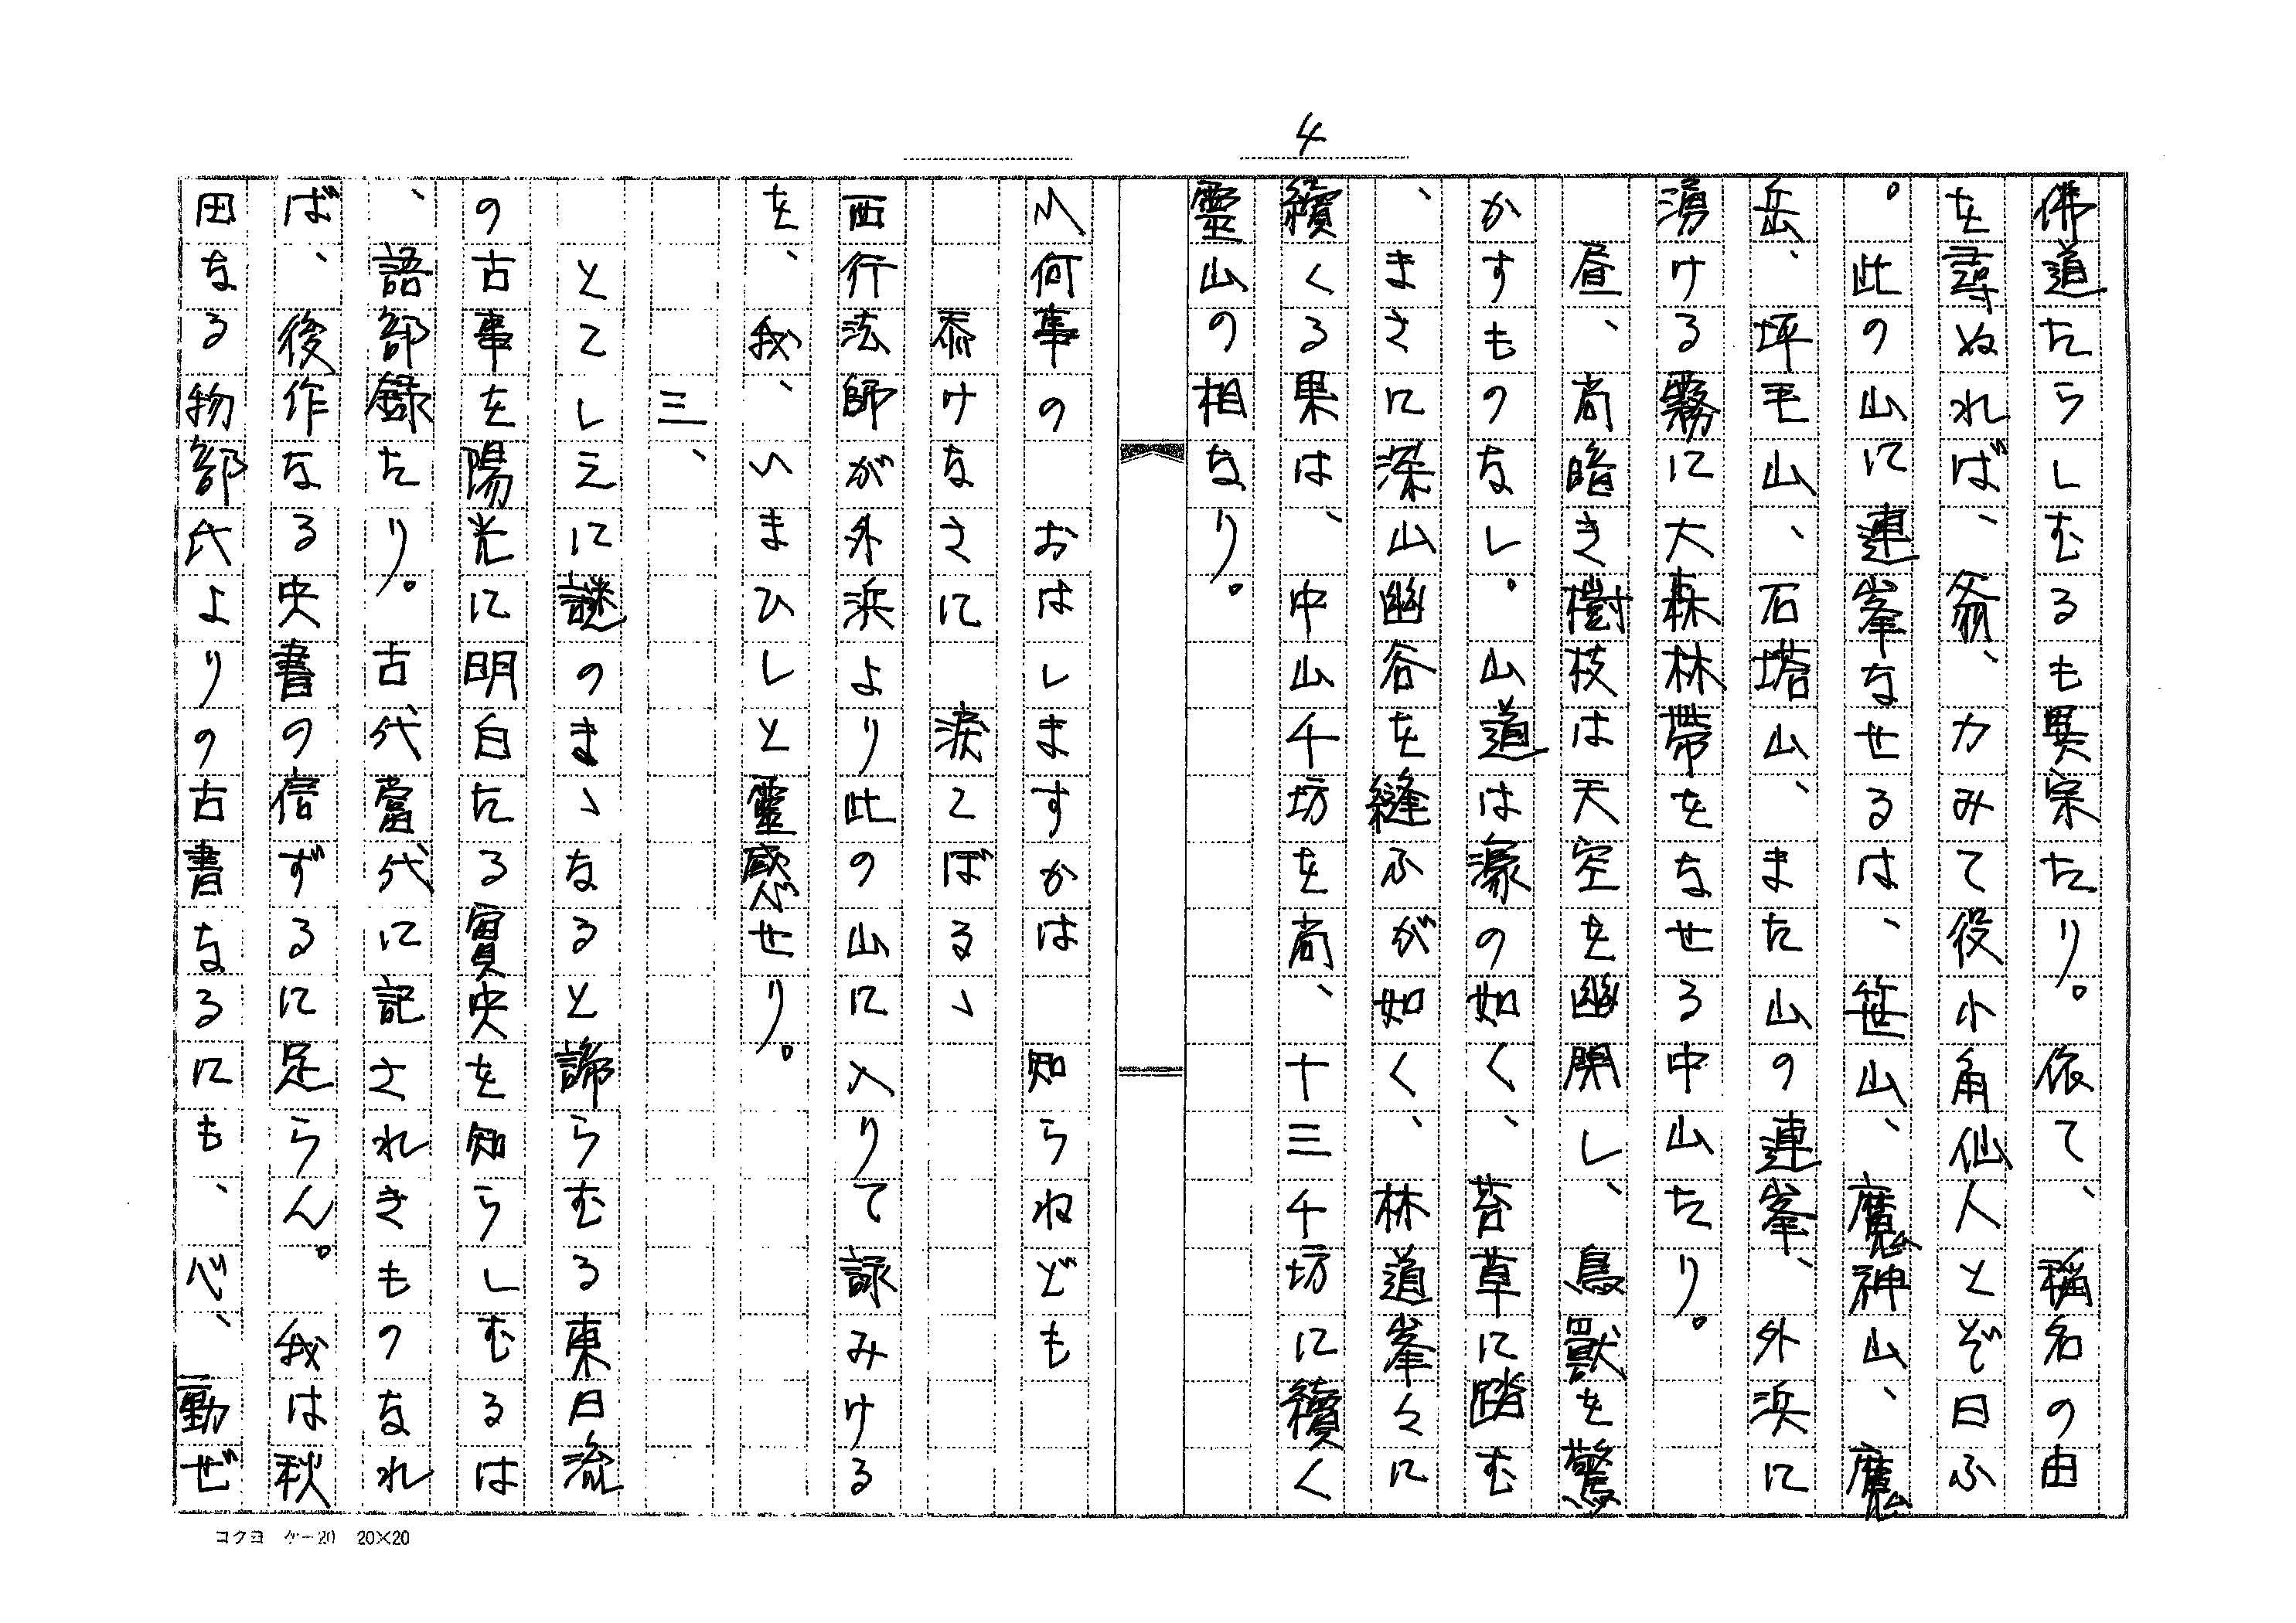 4
佛道たらしむるも異宗たり。依て、稱名の由
を尋ぬれば、爺、カみて役小角仙人とぞ曰ふ
。此の山に連峯なせるは、笹山、魔神山、魔
岳、坪毛山、石塔山、また山の連峯、外浜に
湧ける霧に大森林帶をなせる中山たり。
昼、尚暗き樹枝は天空を幽閉し、鳥獸を驚
かすものなし。山道は濠の如く、苔草に踏む
、まさに深山幽谷を縫ふが如く、林道峯々に
續くる果は、中山千坊を尚、十三千坊に續く
靈山の相なり。
〽何事の おはしますかは 知らねども
忝けなさに 涙こぼるゝ
西行法師が外浜より此の山に入りて詠みける
を、我、いまひしと靈感せり。
三、
とこしえに謎のまゝなると諦らむる東日流
の古事を陽光に明白たる實史を知らしむるは
、語部録たり。古代當代に記されきものなれ
ば、後作なる史書の信ずるに足らん。我は秋
田なる物部氏よりの古書なるにも、心、動ぜ
コクヨ ケー20 20×20